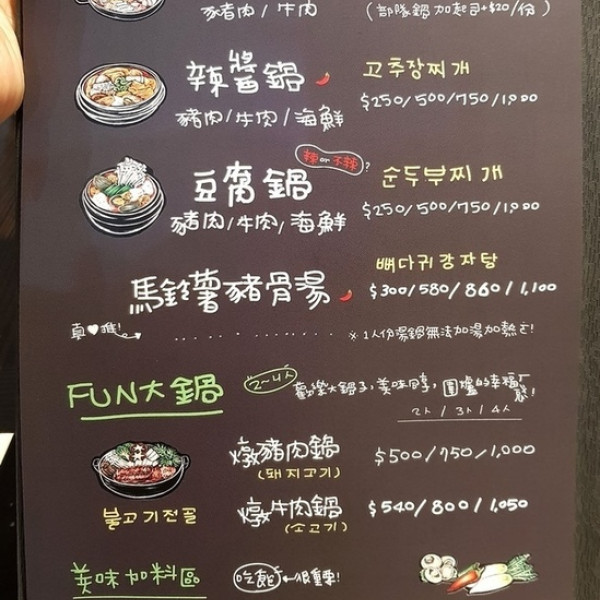 豬肉 / 牛肉
(部隊鍋加起司+$20/份)
辣醬鍋
고추장찌개
$250/500/750/1,000
豬肉/牛肉/海鮮
辣or不辣?
豆腐鍋
순두부찌개
$250/500/750/1,000
豬肉/牛肉/海鮮
뼈다귀감자탕
馬鈴薯豬骨湯
$300/580/860/1,100
真♥推!
※1人份湯鍋無法加湯加熱ㄛ!
FUN大鍋
2~4人
歡樂大鍋子,美味同享,圍爐的幸福
2人/3人/4人
燉豬肉鍋
$500/750/1,000
(돼지고기)
燉牛肉鍋
$540/800/1,050
불고기전골
(소고기)
美味加料區
吃飽←很重要!